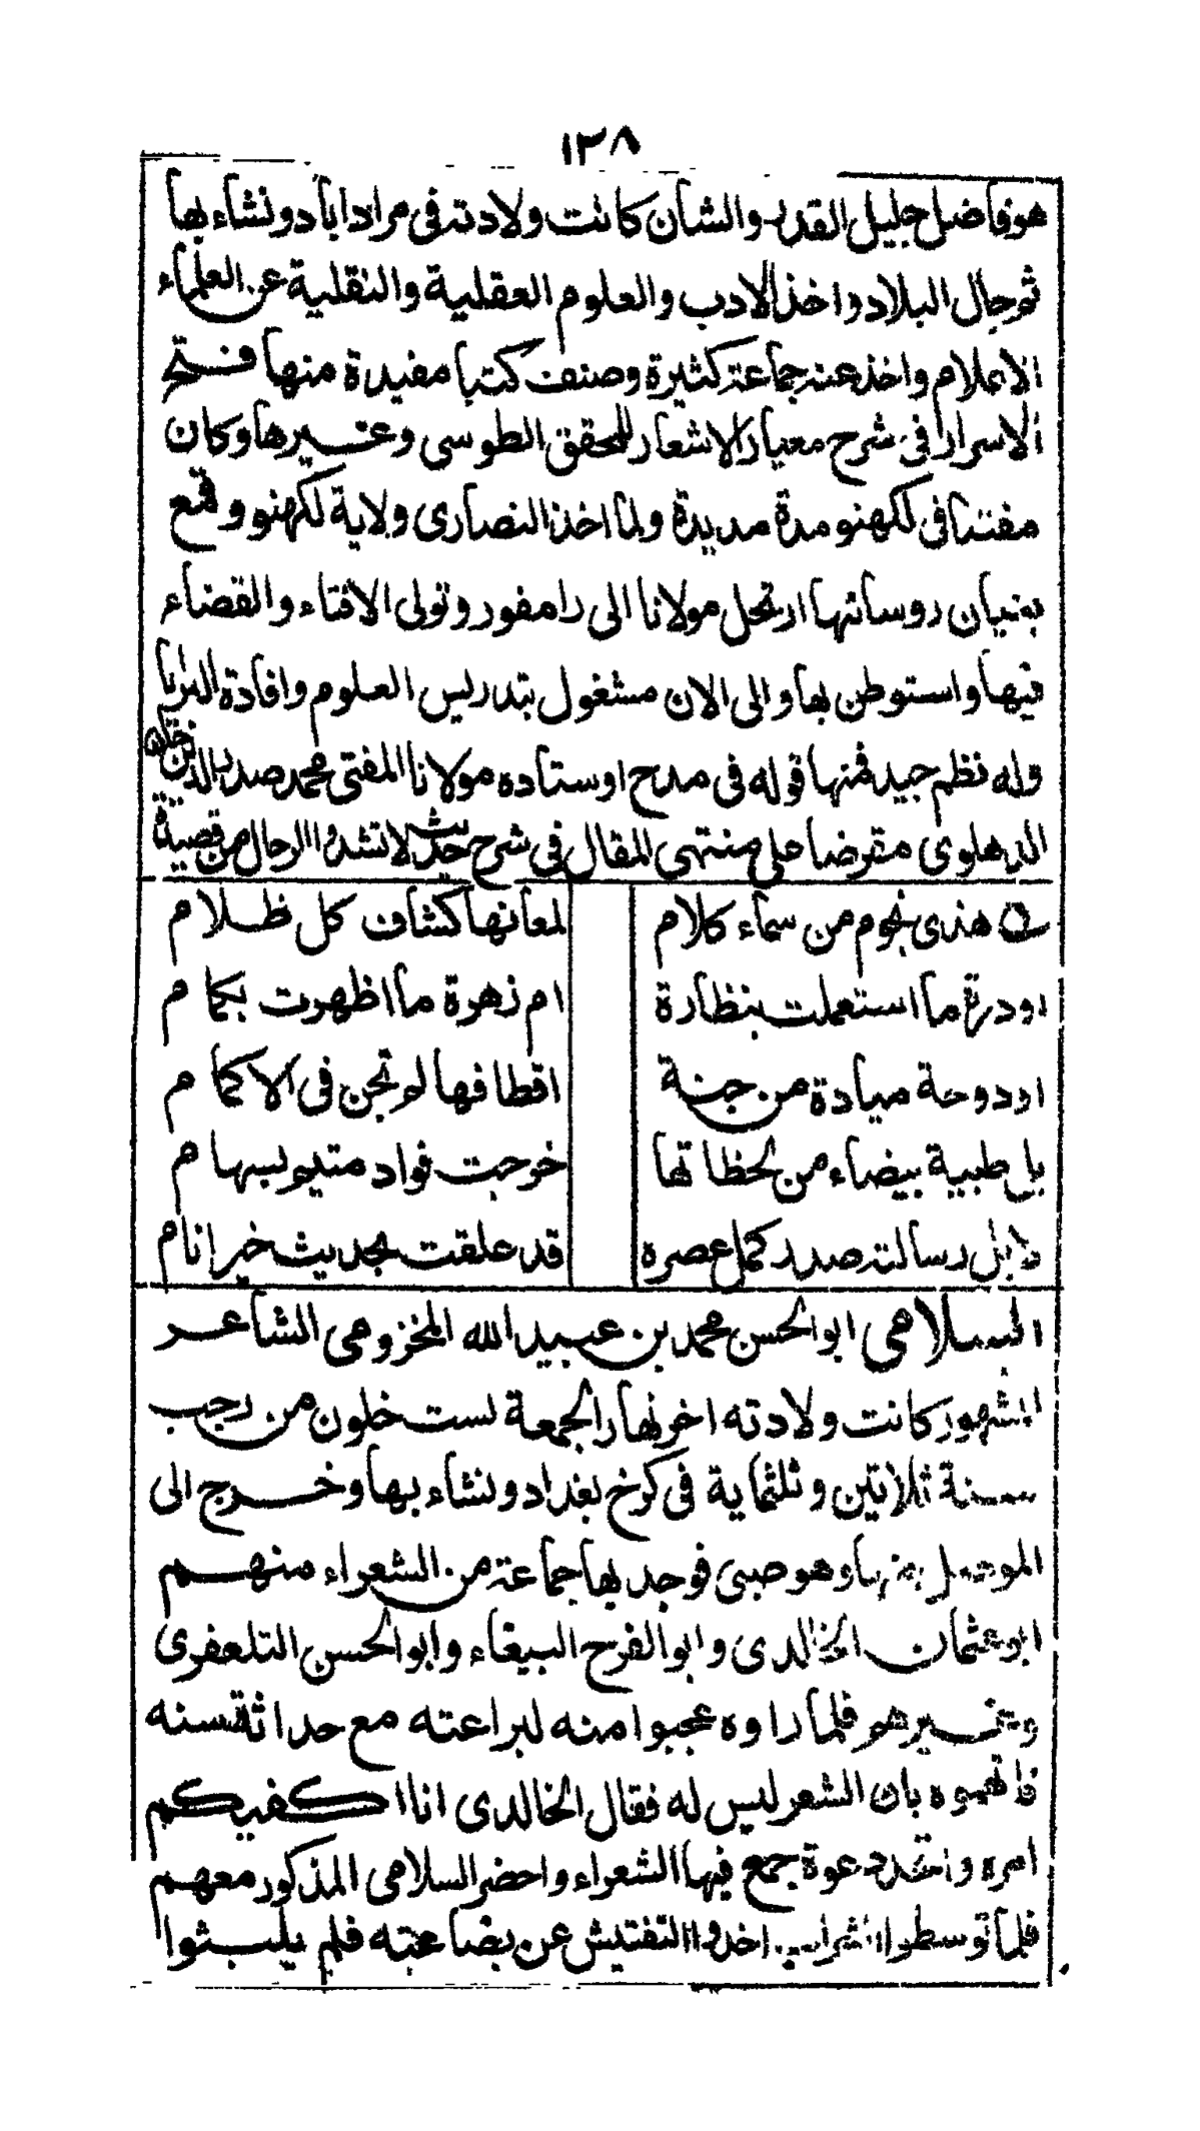 ١٣٨
هو فاضل جليل القدر والشان كانت ولادته فى مراداباد ونشاء بها
ثم جال البلاد واخذ الادب والعلوم العقلية والنقلية عن العلماء
الاعلام واخذ عنه جماعة كثيرة وصنف كتبا مفيدة منها فتح
الاسرار فى شرح معيار الاشعار للمحقق الطوسى وغيرها وكان
مفتنا فى لكهنو مدة مديدة ولما اخذ النصارى ولاية لكهنو وقع
بنيان روسائها ارتحل مولانا الى رامفور وتولى الافتاء والقضاء
فيها واستوطن بها والى الان مشغول بتدريس العلوم وافادة البرايا
وله نظم جيد فمنها قوله فى مدح اوستاده مولانا المفتى محمد صدر الدين خان
الدهلوى مقرضا على منتهى المقال فى شرح حديث لا تشدوا الرحال من قصيدة
هذى نجوم من سماء كلام لمعانها كشاف كل ظلام
او درة ما استعملت بنظارة ام زهرة ما اظهرت بكمام
او دوحة ميادة من جنة اقطافها لم تجن فى الاكمام
بل ظبية بيضاء من لحظاتها خوجت فواد متيم بسهام
لا بل رسالته صدر كمل عصره قد علقت بحديث خير انام
السلامى ابو الحسن محمد بن عبيد الله المخزومى الشاعر
المشهور كانت ولادته اخر نهار الجمعة لست خلون من رجب
سنة ثلاثين وثلثماية فى كرخ بغداد ونشاء بها وخرج الى
الموصل منها وهو صبى فوجد بها جماعة من الشعراء منهم
ابو عثمان الخالدى وابو الفرح الببغاء وابو الحسن التلعفرى
وغيرهم فلما راوه عجبوا منه لبراعته مع حداثة سنه
فاتهموه بان الشعر ليس له فقال الخالدى انا اكفيكم
امره واتخذ دعوة جمع فيها الشعراء واحضر السلامى المذكور معهم
فلما توسطوا الشراب اخذوا التفتيش عن بضاعته فلم يلبثوا